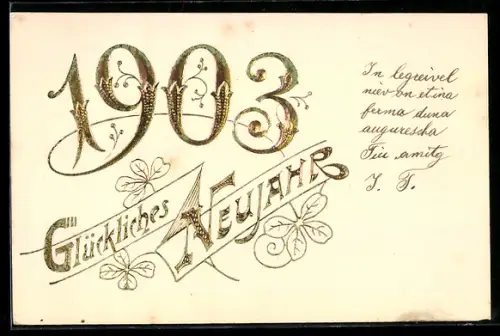 1903
Glückliches
Neujahr
In legreivel
niev on et ina
ferma duna
augurescha
Tiu amitg
J. S.